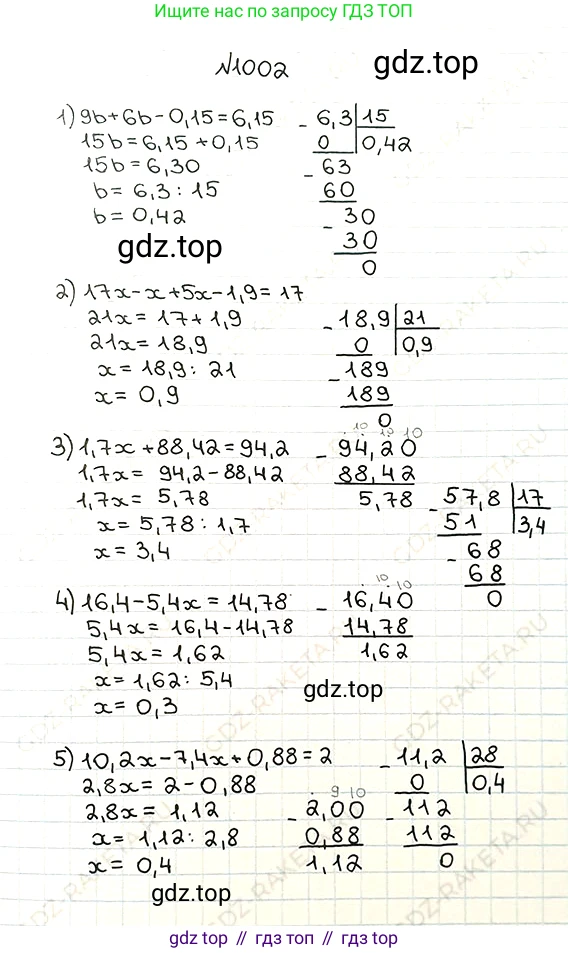 Ищите нас по запросу ГДЗ ТОП
№1002
gdz.top
1) 9b+6b-0,15=6,15
15b=6,15+0,15
15b=6,30
b=6,3:15
b=0,42
- 6,3 | 15
0 | 0,42
- 63
60
- 30
30
0
gdz.top
2) 17x-x+5x-1,9=17
21x=17+1,9
21x=18,9
x=18,9:21
x=0,9
- 18,9 | 21
0 | 0,9
- 189
189
0
3) 1,7x+88,42=94,2
1,7x=94,2-88,42
1,7x=5,78
x=5,78:1,7
x=3,4
10 10 10
- 94,20
88,42
5,78
- 57,8 | 17
51 | 3,4
- 68
68
0
4) 16,4-5,4x=14,78
5,4x=16,4-14,78
5,4x=1,62
x=1,62:5,4
x=0,3
10 10
- 16,40
14,78
1,62
gdz.top
5) 10,2x-7,4x+0,88=2
2,8x=2-0,88
2,8x=1,12
x=1,12:2,8
x=0,4
9 10
- 2,00
0,88
1,12
- 11,2 | 28
0 | 0,4
- 112
112
0
gdz.top
GDZ-RAKETA.RU
gdz.top // гдз топ // гдз.топ